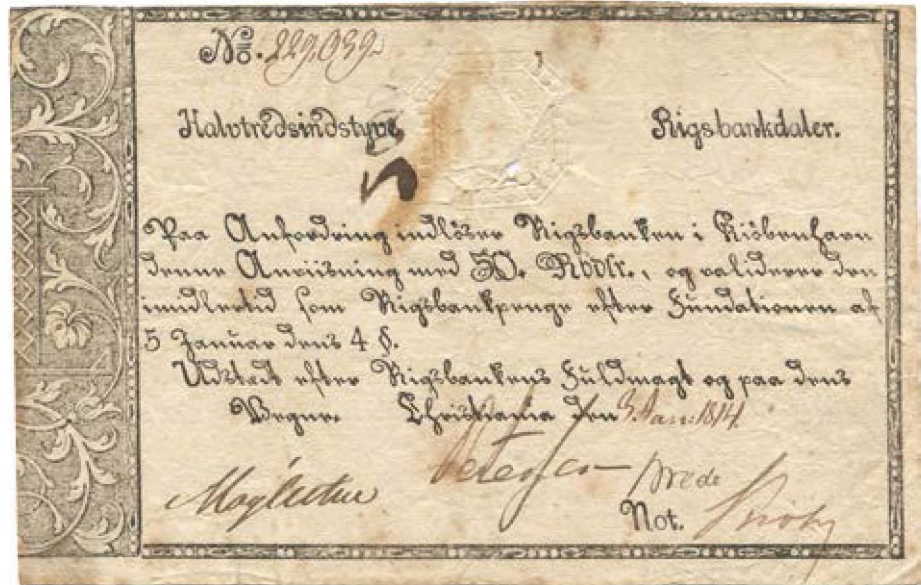 No. 229.039
Halvtredsindstyve Rigsbankdaler.
Paa Anfordring indlöser Rigsbanken i Kiöbenhavn
denne Anviisning med 50. Rbdlr., og validerer den
imidlertid som Rigsbankpenge efter Fundationen af
5 Januar dens 4 §.
Udstædt efter Rigsbankens Fuldmagt og paa dens
Vegne. Christiania den 3 Jan: 1814.
Petersen
Not.